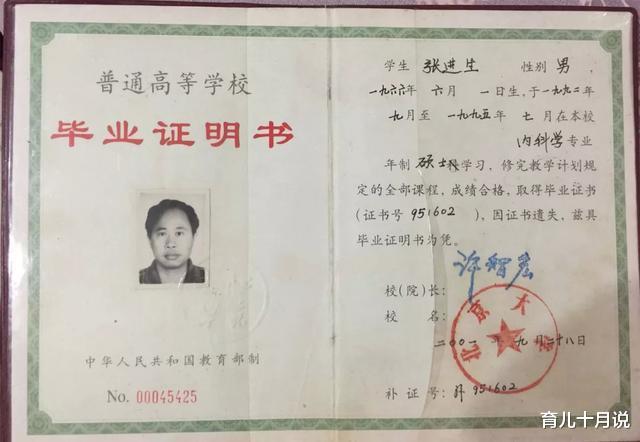 普通高等学校
毕业证明书
中华人民共和国教育部制
No. 00045425
学生 张进生 性别 男
一九六六年 六月 一日生,于一九九二年
九月至 一九九五年 七月在本校
内科学专业
年制 硕士科学习,修完教学计划规
定的全部课程,成绩合格,取得毕业证书
(证书号 951602 ),因证书遗失,兹具
毕业证明书为凭。
校(院)长: 许智宏
校 名:
北京大学
二〇〇一年九月二十八日
补证号: 补 951602
育儿十月说